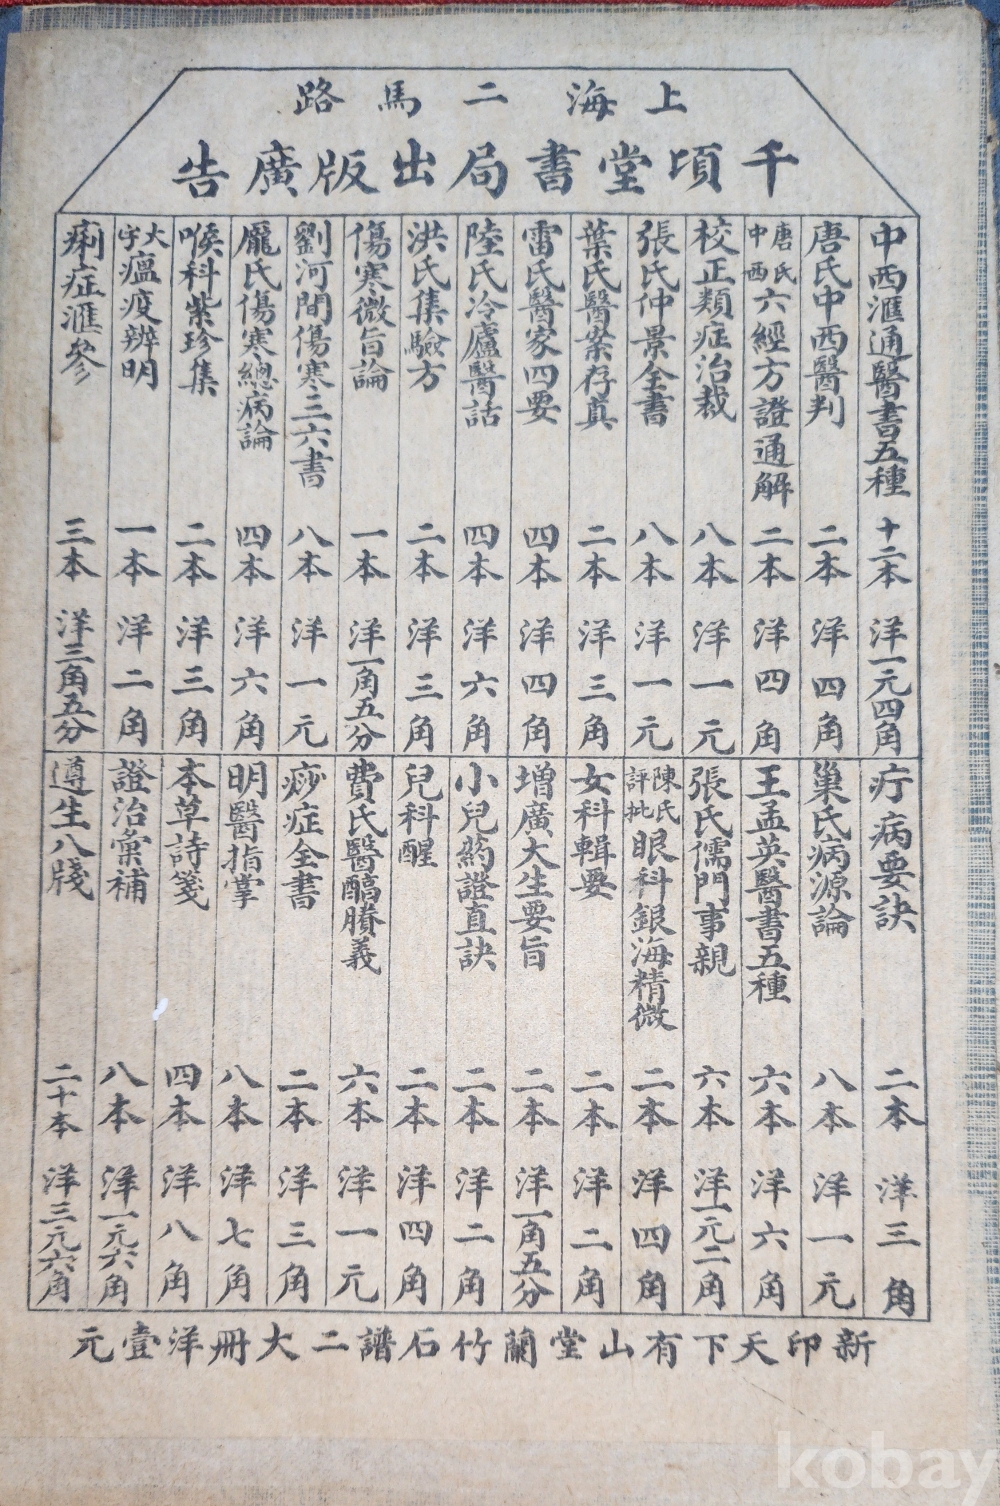 上海二馬路
千頃堂書局出版廣告
中西滙通醫書五種 十二本 洋一元四角
唐氏中西醫判 二本 洋四角
唐氏中西六經方證通解 二本 洋四角
校正類症治裁 八本 洋一元
張氏仲景全書 八本 洋一元
葉氏醫案存真 二本 洋三角
雷氏醫家四要 四本 洋四角
陸氏冷廬醫話 四本 洋六角
洪氏集驗方 二本 洋三角
傷寒微旨論 一本 洋一角五分
劉河間傷寒三六書 八本 洋一元
龐氏傷寒總病論 四本 洋六角
喉科紫珍集 二本 洋三角
大字瘟疫辨明 一本 洋二角
痢症滙參 三本 洋三角五分
疔病要訣 二本 洋三角
巢氏病源論 八本 洋一元
王孟英醫書五種 六本 洋六角
張氏儒門事親 六本 洋一元二角
陳氏評批眼科銀海精微 二本 洋四角
女科輯要 二本 洋二角
增廣大生要旨 二本 洋一角五分
小兒药證直訣 二本 洋二角
兒科醒 二本 洋四角
費氏醫醇賸義 六本 洋一元
痧症全書 二本 洋三角
明醫指掌 八本 洋七角
本草詩箋 四本 洋八角
證治彙補 八本 洋一元六角
遵生八牋 二十本 洋三元六角
新印天下有山堂蘭竹石譜二大冊洋壹元
kobay